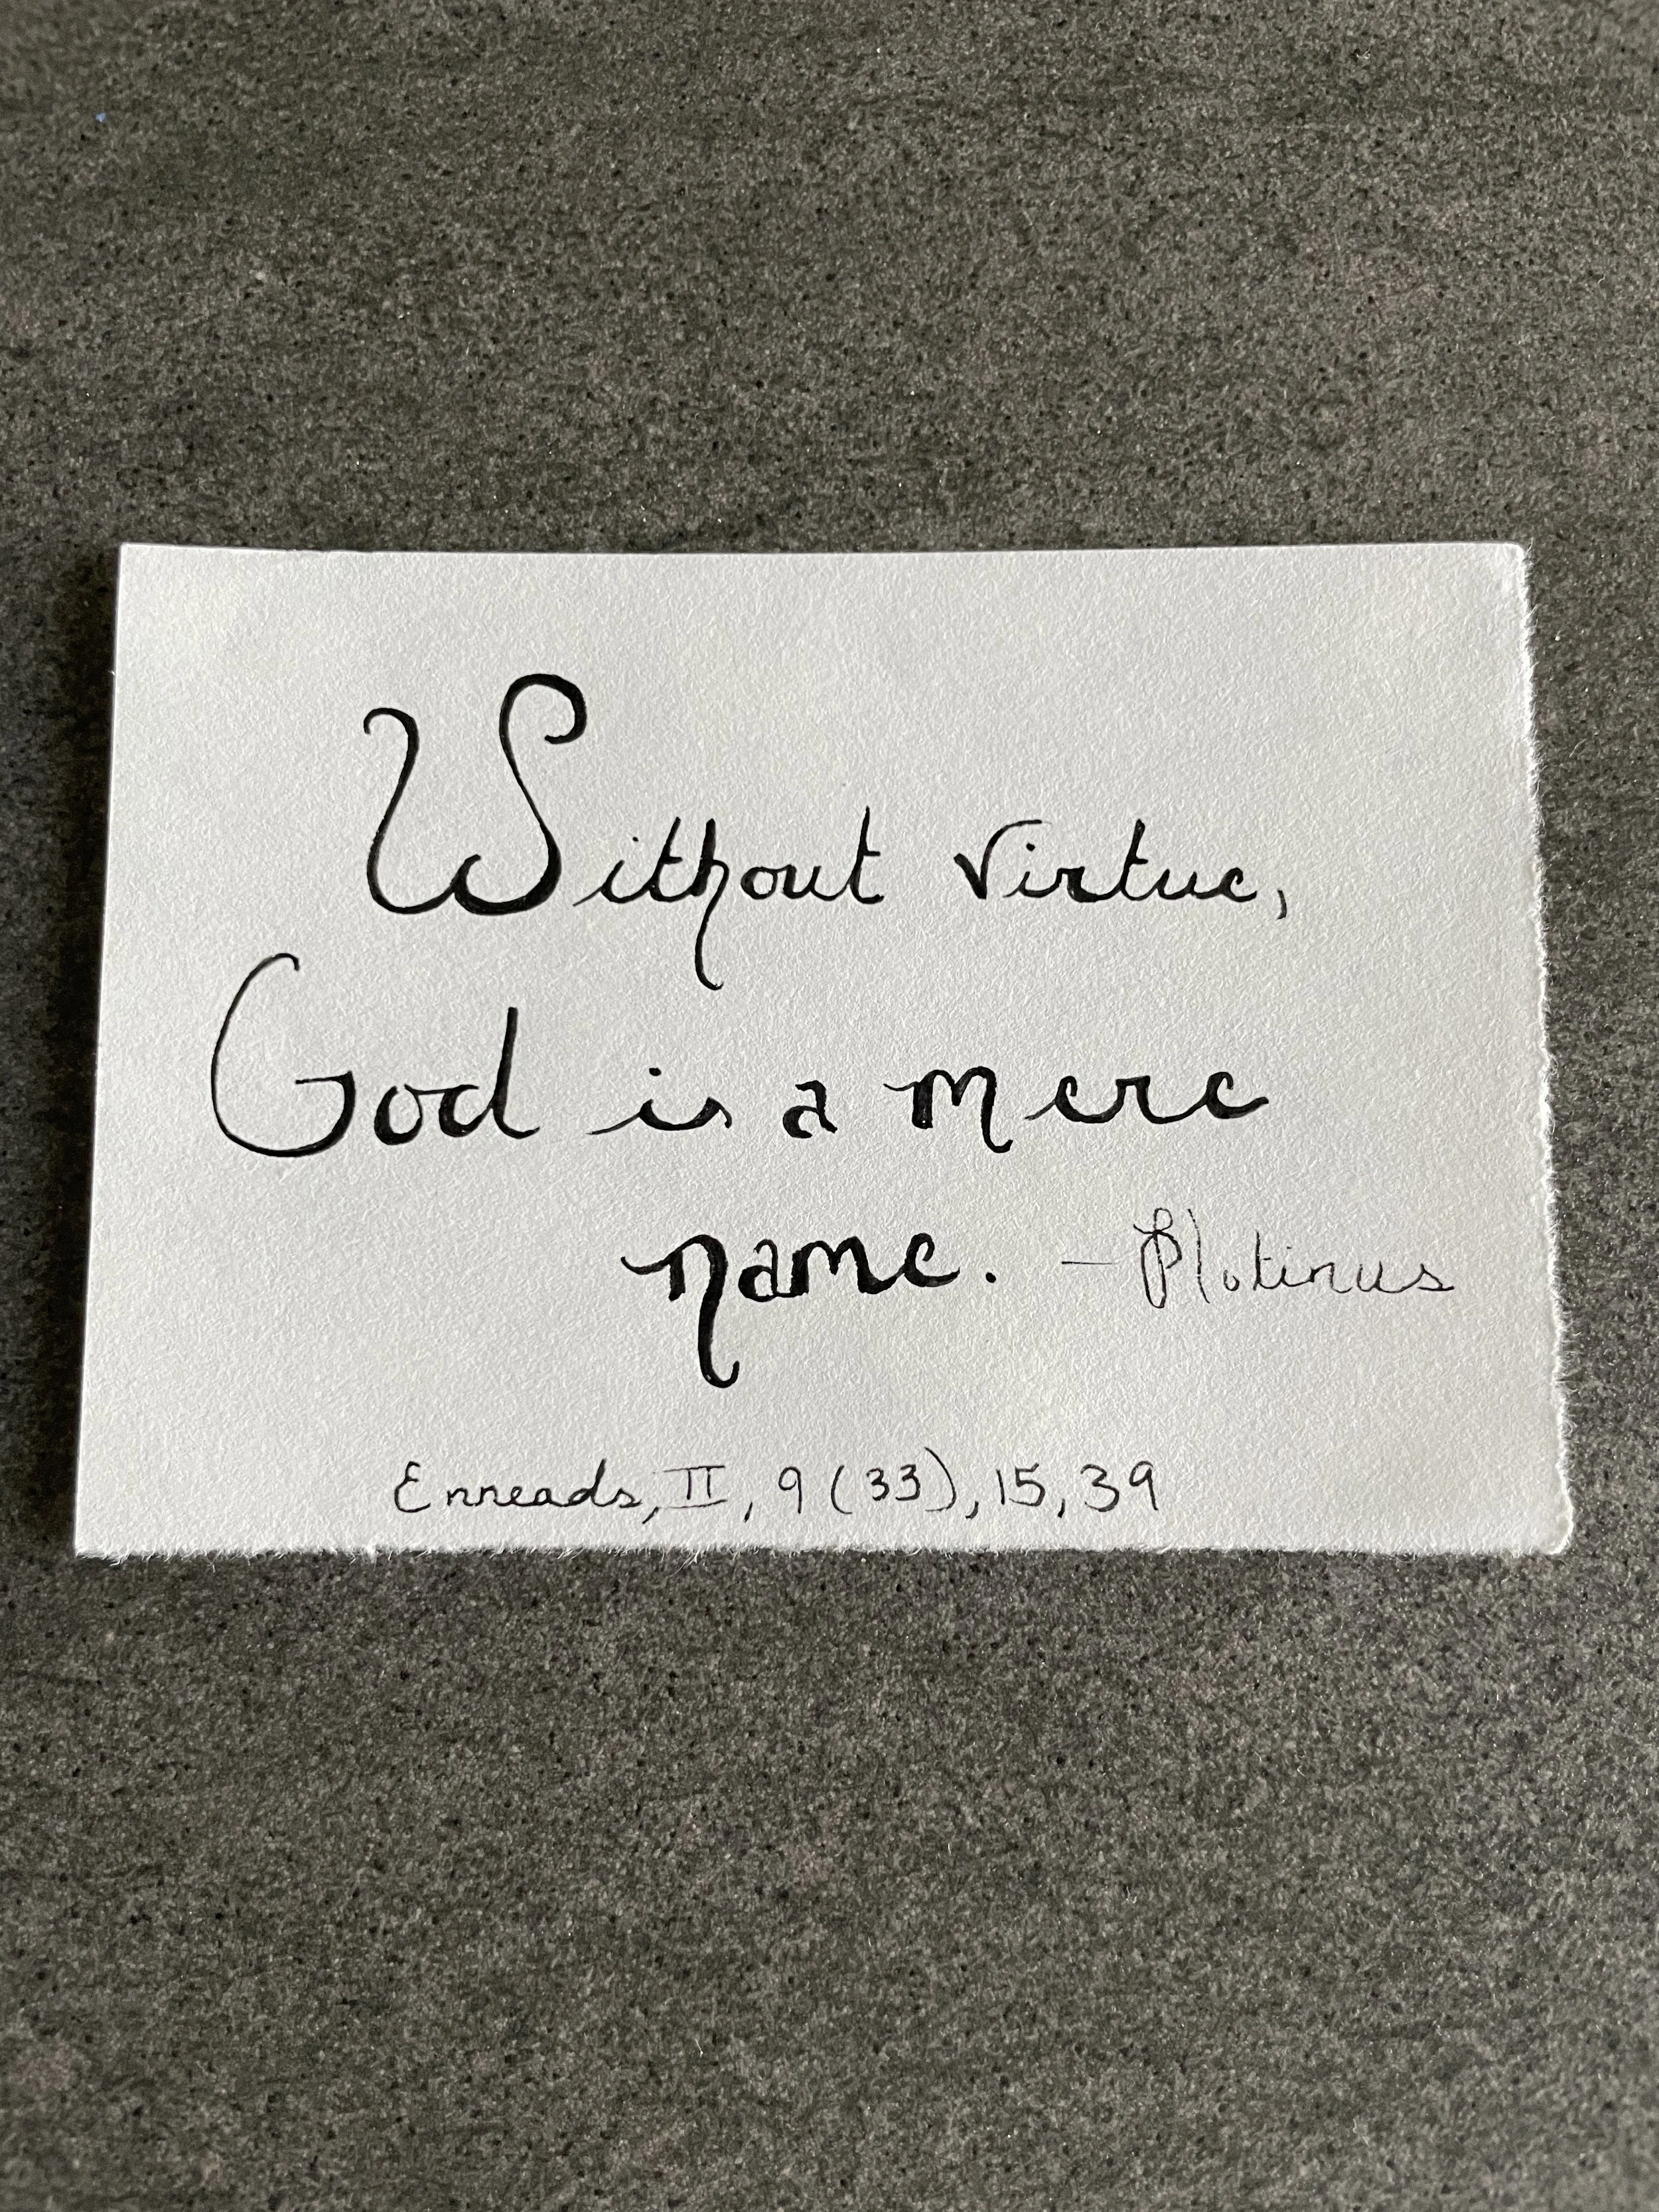 Without virtue,
God is a mere
name. - Plotinus
Enneads, II, 9 (33), 15, 39